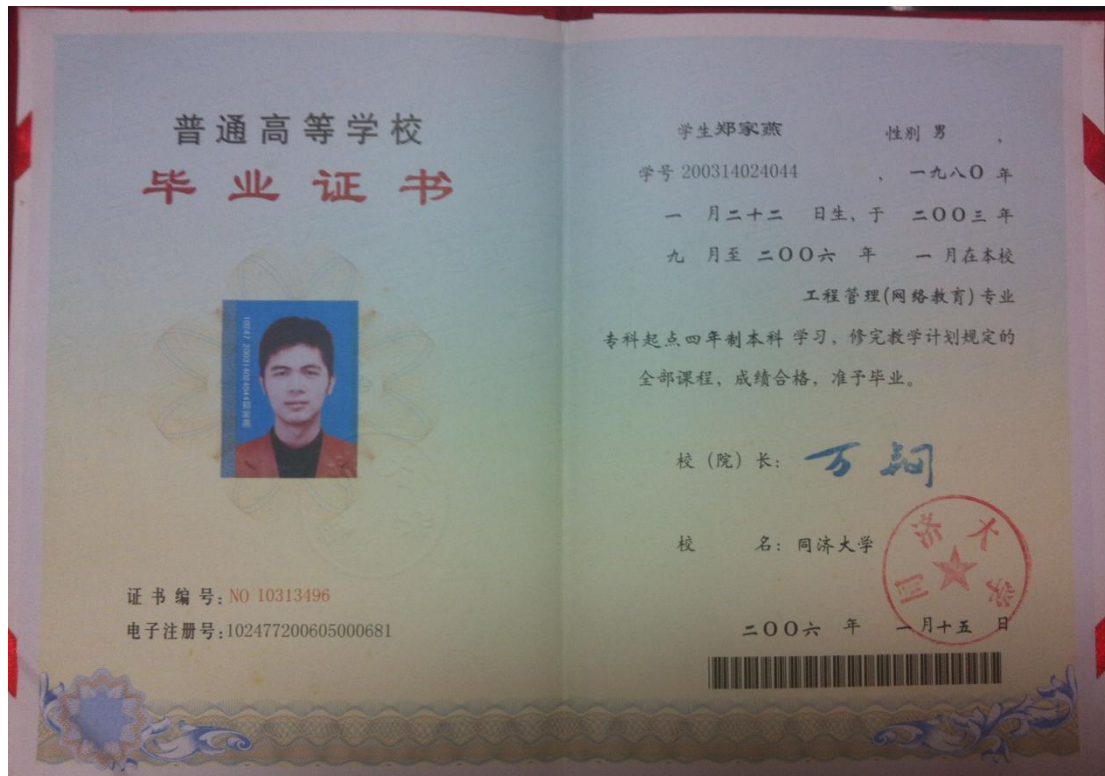 普通高等学校
毕业证书
10247 200314024044郑家燕
证书编号:NO 10313496
电子注册号:102477200605000681
学生郑家燕 性别 男 ,
学号 200314024044 、 一九八〇 年
一 月二十二 日生, 于 二〇〇三 年
九 月至 二〇〇六 年 一 月在本校
工程管理(网络教育)专业
专科起点四年制本科 学习, 修完教学计划规定的
全部课程, 成绩合格, 准予毕业。
校 (院) 长: 万钢
校 名: 同济大学
同济大学
二〇〇六 年 一月十五 日